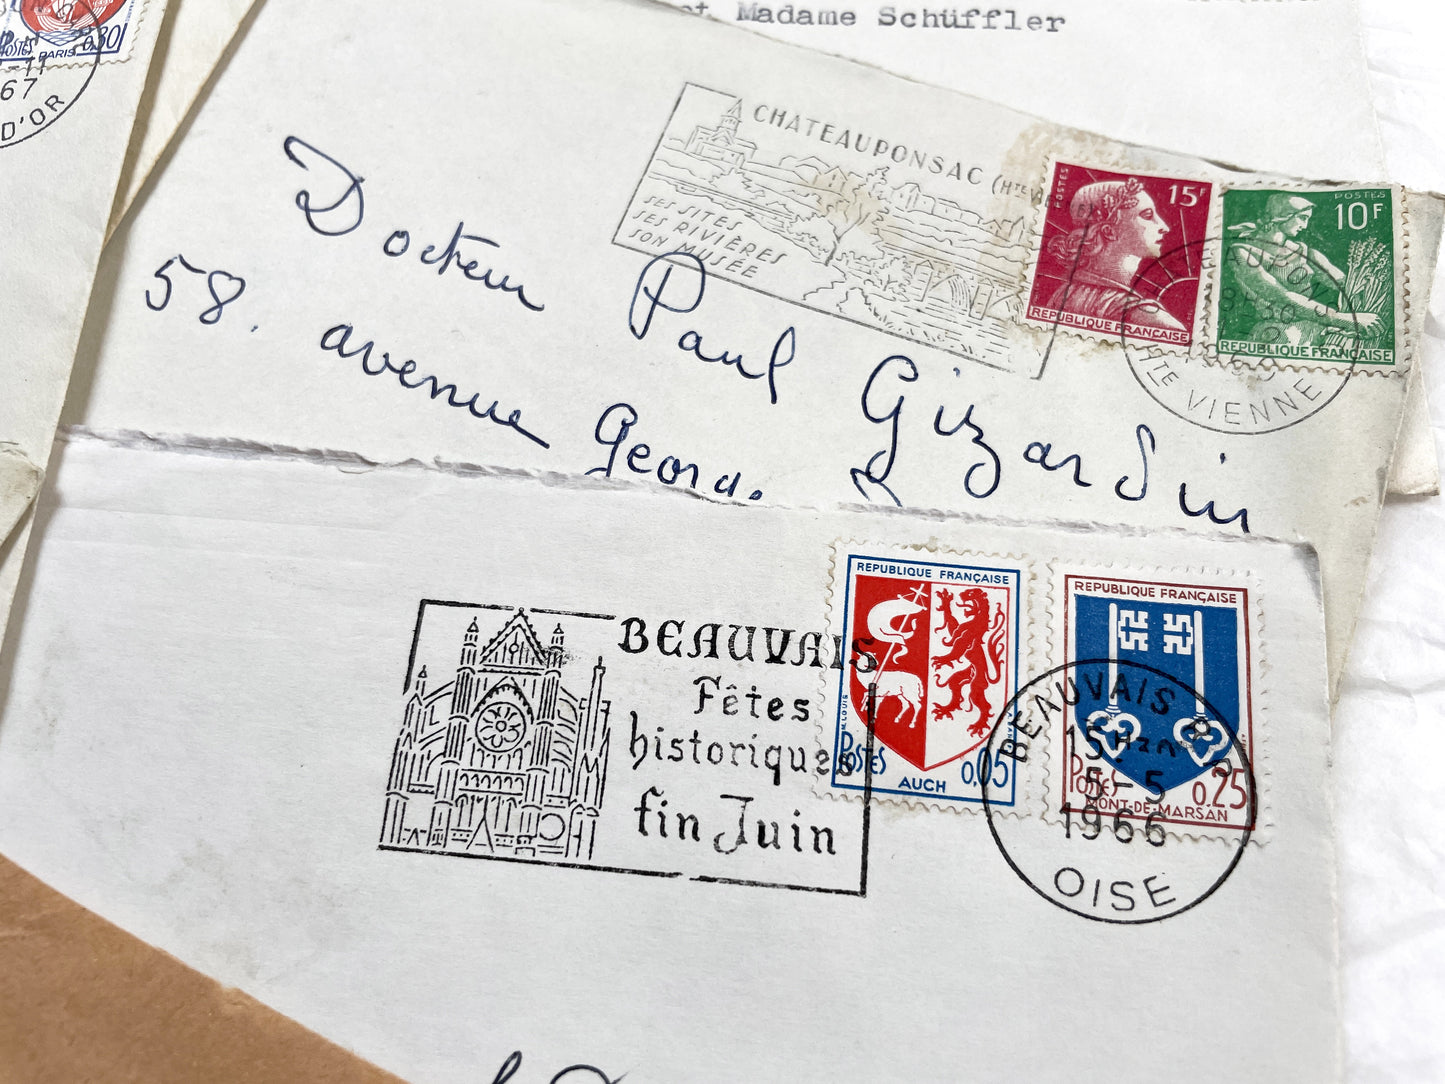 et Madame Schüffler
0,30
POSTES PARIS
67
D'OR
CHATEAUPONSAC (Hte
SES SITES
SES RIVIÈRES
SON MUSÉE
POSTES
15F
REPUBLIQUE FRANÇAISE
POSTES
10F
REPUBLIQUE FRANÇAISE
HTE VIENNE
Docteur Paul Gizardin
58. avenue
BEAUVAIS
Fêtes
historiques
fin Juin
REPUBLIQUE FRANÇAISE
POSTES
0,05
AUCH
REPUBLIQUE FRANÇAISE
POSTES
0,25
MONT-DE-MARSAN
BEAUVAIS
5-5
1966
OISE